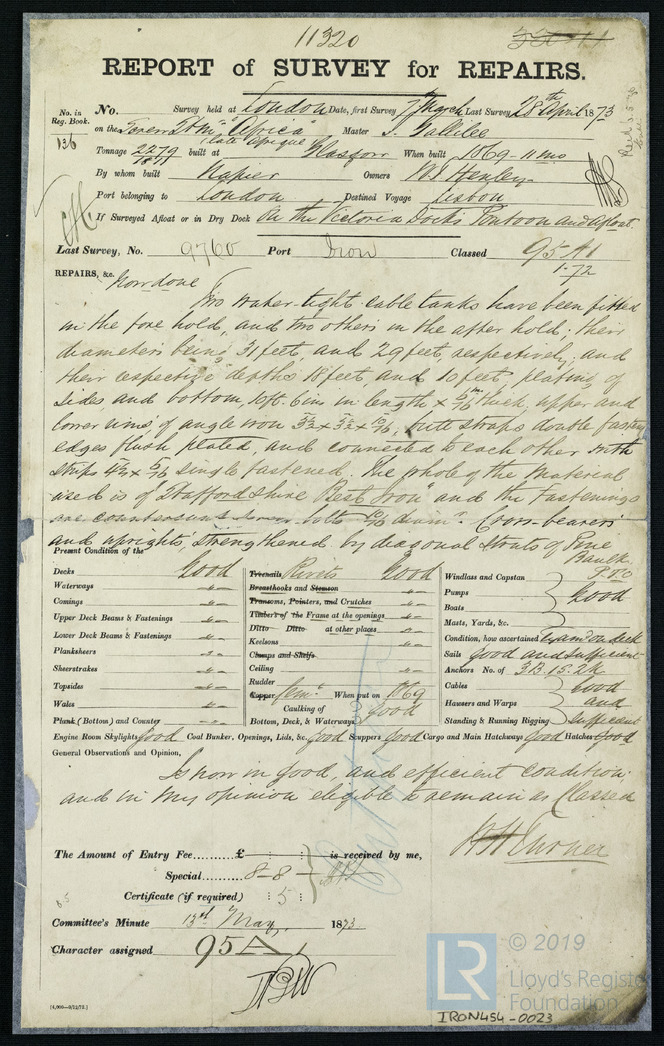 11320
REPORT of SURVEY for REPAIRS.
No. in Reg. Book.
136
No. Survey held at London Date, first Survey 7 March Last Survey 28th April 1873
on the Screw Str "Africa" Master J. Tallilee
late Afrique
Tonnage 2279 built at Glasgow When built 1869-11 mo
1877
By whom built Napier Owners W. T. Henley
Port belonging to London Destined Voyage Lisbon
If Surveyed Afloat or in Dry Dock On the Victoria Docks Pontoon and afloat.
Last Survey, No. 9760 Port Iron Classed 95 A1
1-72
REPAIRS, &c. Now done
Two water-tight cable tanks have been fitted
in the fore hold, and two others in the after hold: their
diameters being 31 feet, and 29 feet, respectively; and
their respective depths 18 feet and 10 feet, plating of
sides and bottom 10ft. 6ins in length × thick, upper and
lower rims of angle iron butt straps double fasten
edges flush plated, and connected to each other with
straps single fastened. The whole of the material
used is of Staffordshire "Best Iron" and the Fastenings
are countersunk screw bolts diamr. Cross-bearers
and uprights, strengthened by diagonal struts of Pine
Baulk.
P.T.O
Present Condition of the
Decks Good
Waterways "
Comings "
Upper Deck Beams & Fastenings "
Lower Deck Beams & Fastenings "
Planksheers "
Sheerstrakes "
Topsides "
Wales "
Plank (Bottom) and Counter "
Treenails Rivets Good
Breasthooks and Stemson "
Transoms, Pointers, and Crutches "
Timbers of the Frame at the openings "
Ditto Ditto at other places "
Keelsons "
Clamps and Shelfs
Ceiling "
Rudder "
Copper Cemt. When put on 1869
Caulking of Bottom, Deck, & Waterways Good
Windlass and Capstan
Pumps
Boats
Masts, Yards, &c.
Good
Condition, how ascertained Exam on deck
Sails Good and sufficient
Anchors No. of 3B. 1S. 2K
Cables Good
Hawsers and Warps and
Standing & Running Rigging sufficient
Engine Room Skylights Good Coal Bunker, Openings, Lids, &c. Good Scuppers Good Cargo and Main Hatchways Good Hatches Good
General Observations and Opinion,
Is now in good, and efficient condition;
and in my opinion eligible to remain as Classed
W H Turner
The Amount of Entry Fee......... £ : : is received by me,
Special......... 8-8
Certificate (if required) : 5 :
Committee's Minute 13th May, 1873
Character assigned 95 A 1
[4,000—8/12/72.]
LR
© 2019
Lloyd's Register
Foundation
IRON454-0023